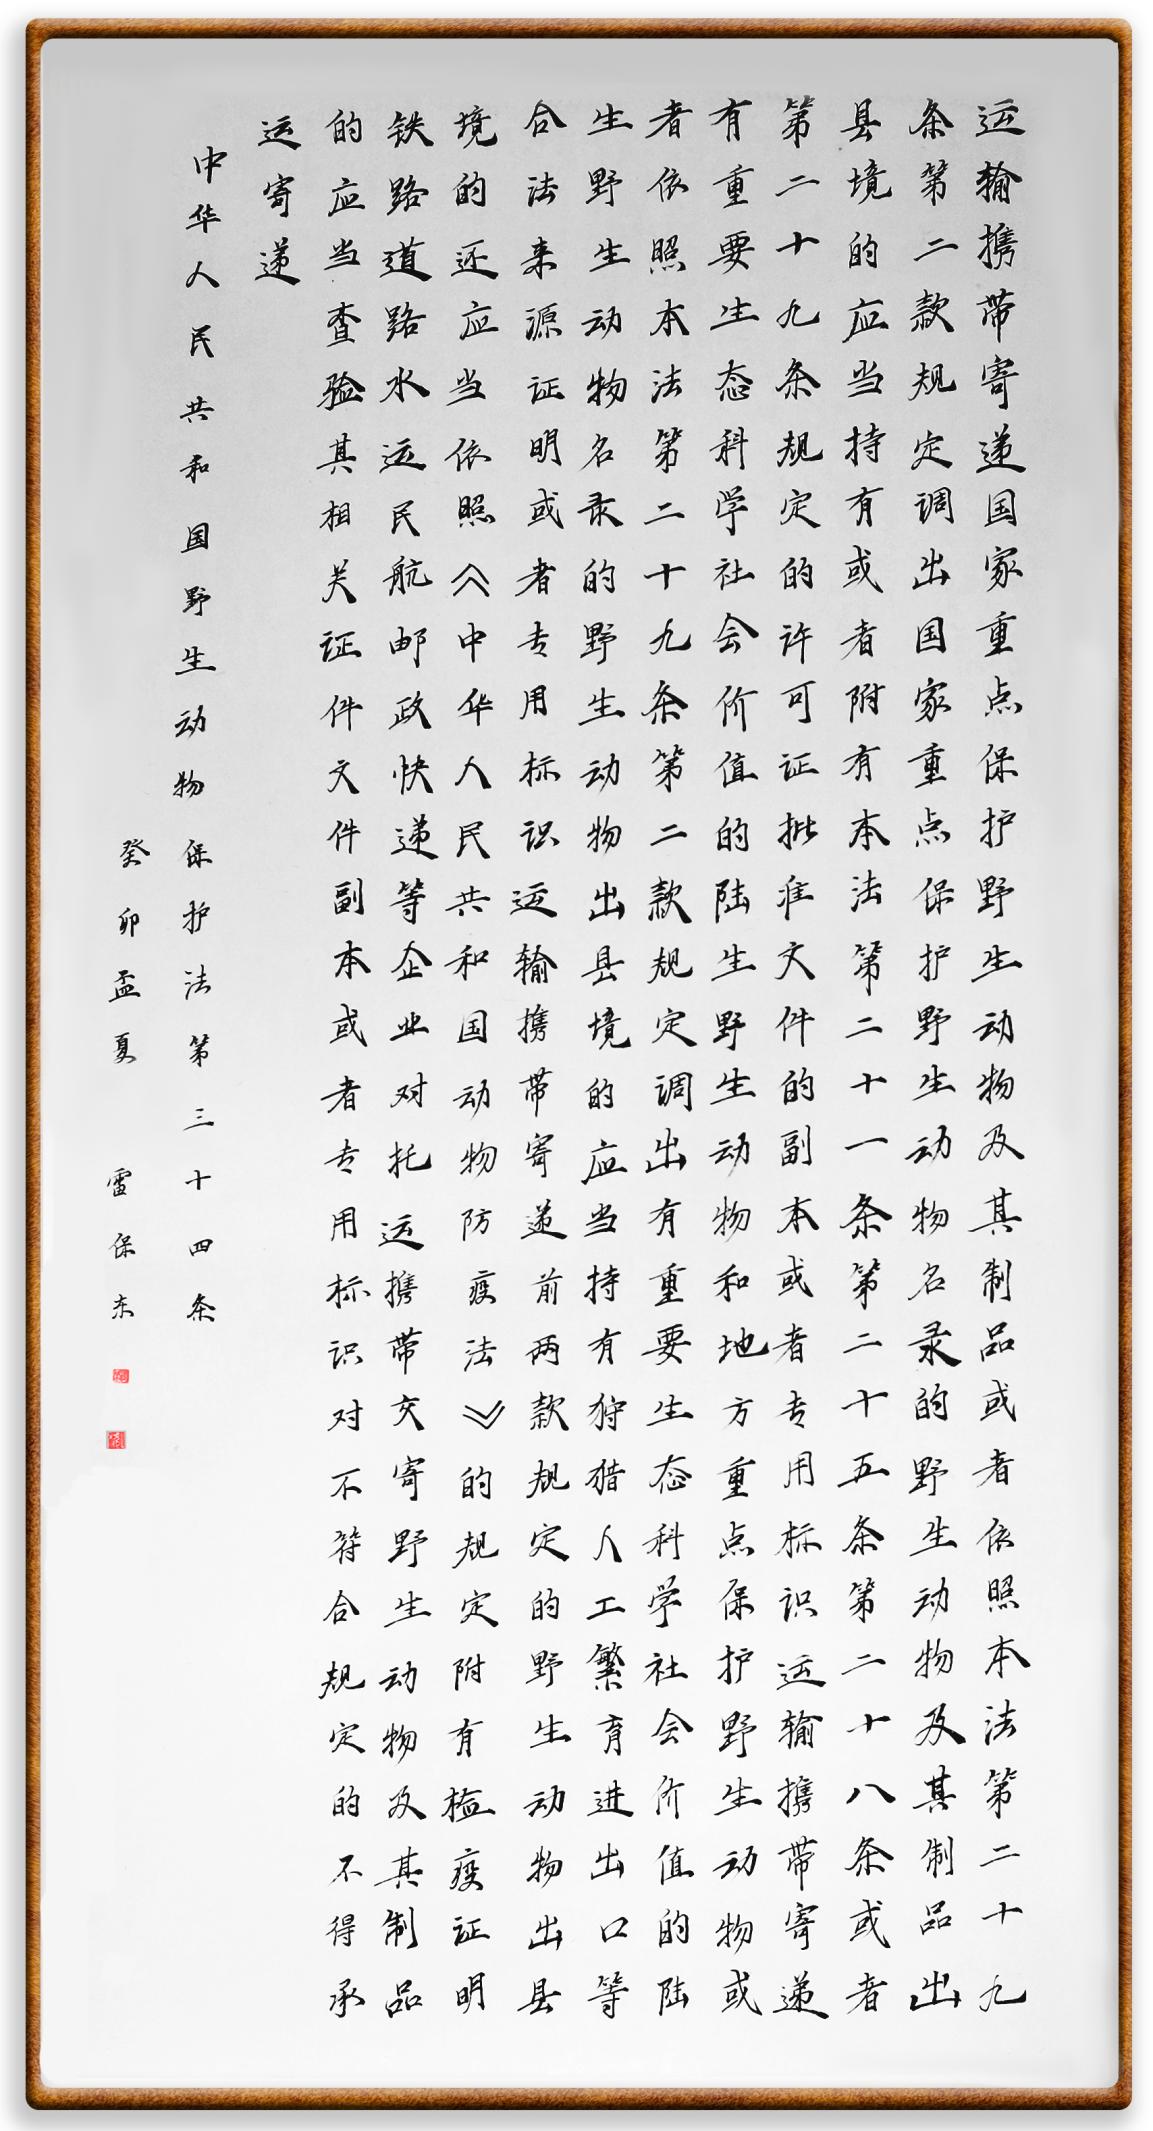 运输携带寄递国家重点保护野生动物及其制品或者依照本法第二十九
条第二款规定调出国家重点保护野生动物名录的野生动物及其制品出
县境的应当持有或者附有本法第二十一条第二十五条第二十八条或者
第二十九条规定的许可证批准文件的副本或者专用标识运输携带寄递
有重要生态科学社会价值的陆生野生动物和地方重点保护野生动物或
者依照本法第二十九条第二款规定调出有重要生态科学社会价值的陆
生野生动物名录的野生动物出县境的应当持有狩猎人工繁育进出口等
合法来源证明或者专用标识运输携带寄递前两款规定的野生动物出县
境的还应当依照《中华人民共和国动物防疫法》的规定附有检疫证明
铁路道路水运民航邮政快递等企业对托运携带交寄野生动物及其制品
的应当查验其相关证件文件副本或者专用标识对不符合规定的不得承
运寄递
中华人民共和国野生动物保护法第三十四条
癸卯孟夏 雷保东